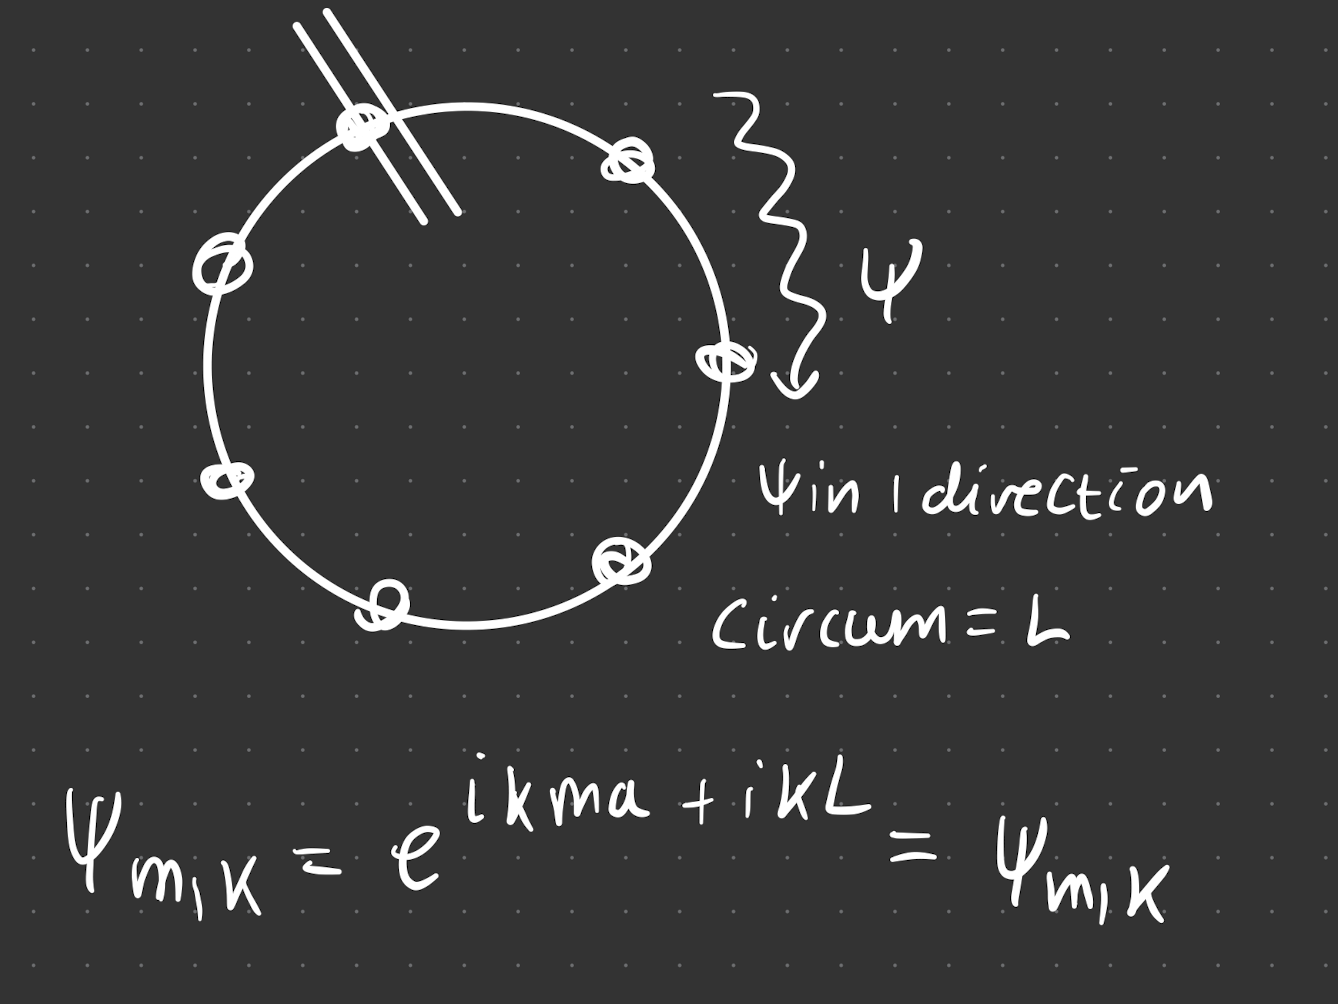 ψ
ψ in 1 direction
Circum = L
ψ_{m,k} = e^{ikma + ikL} = ψ_{m,k}